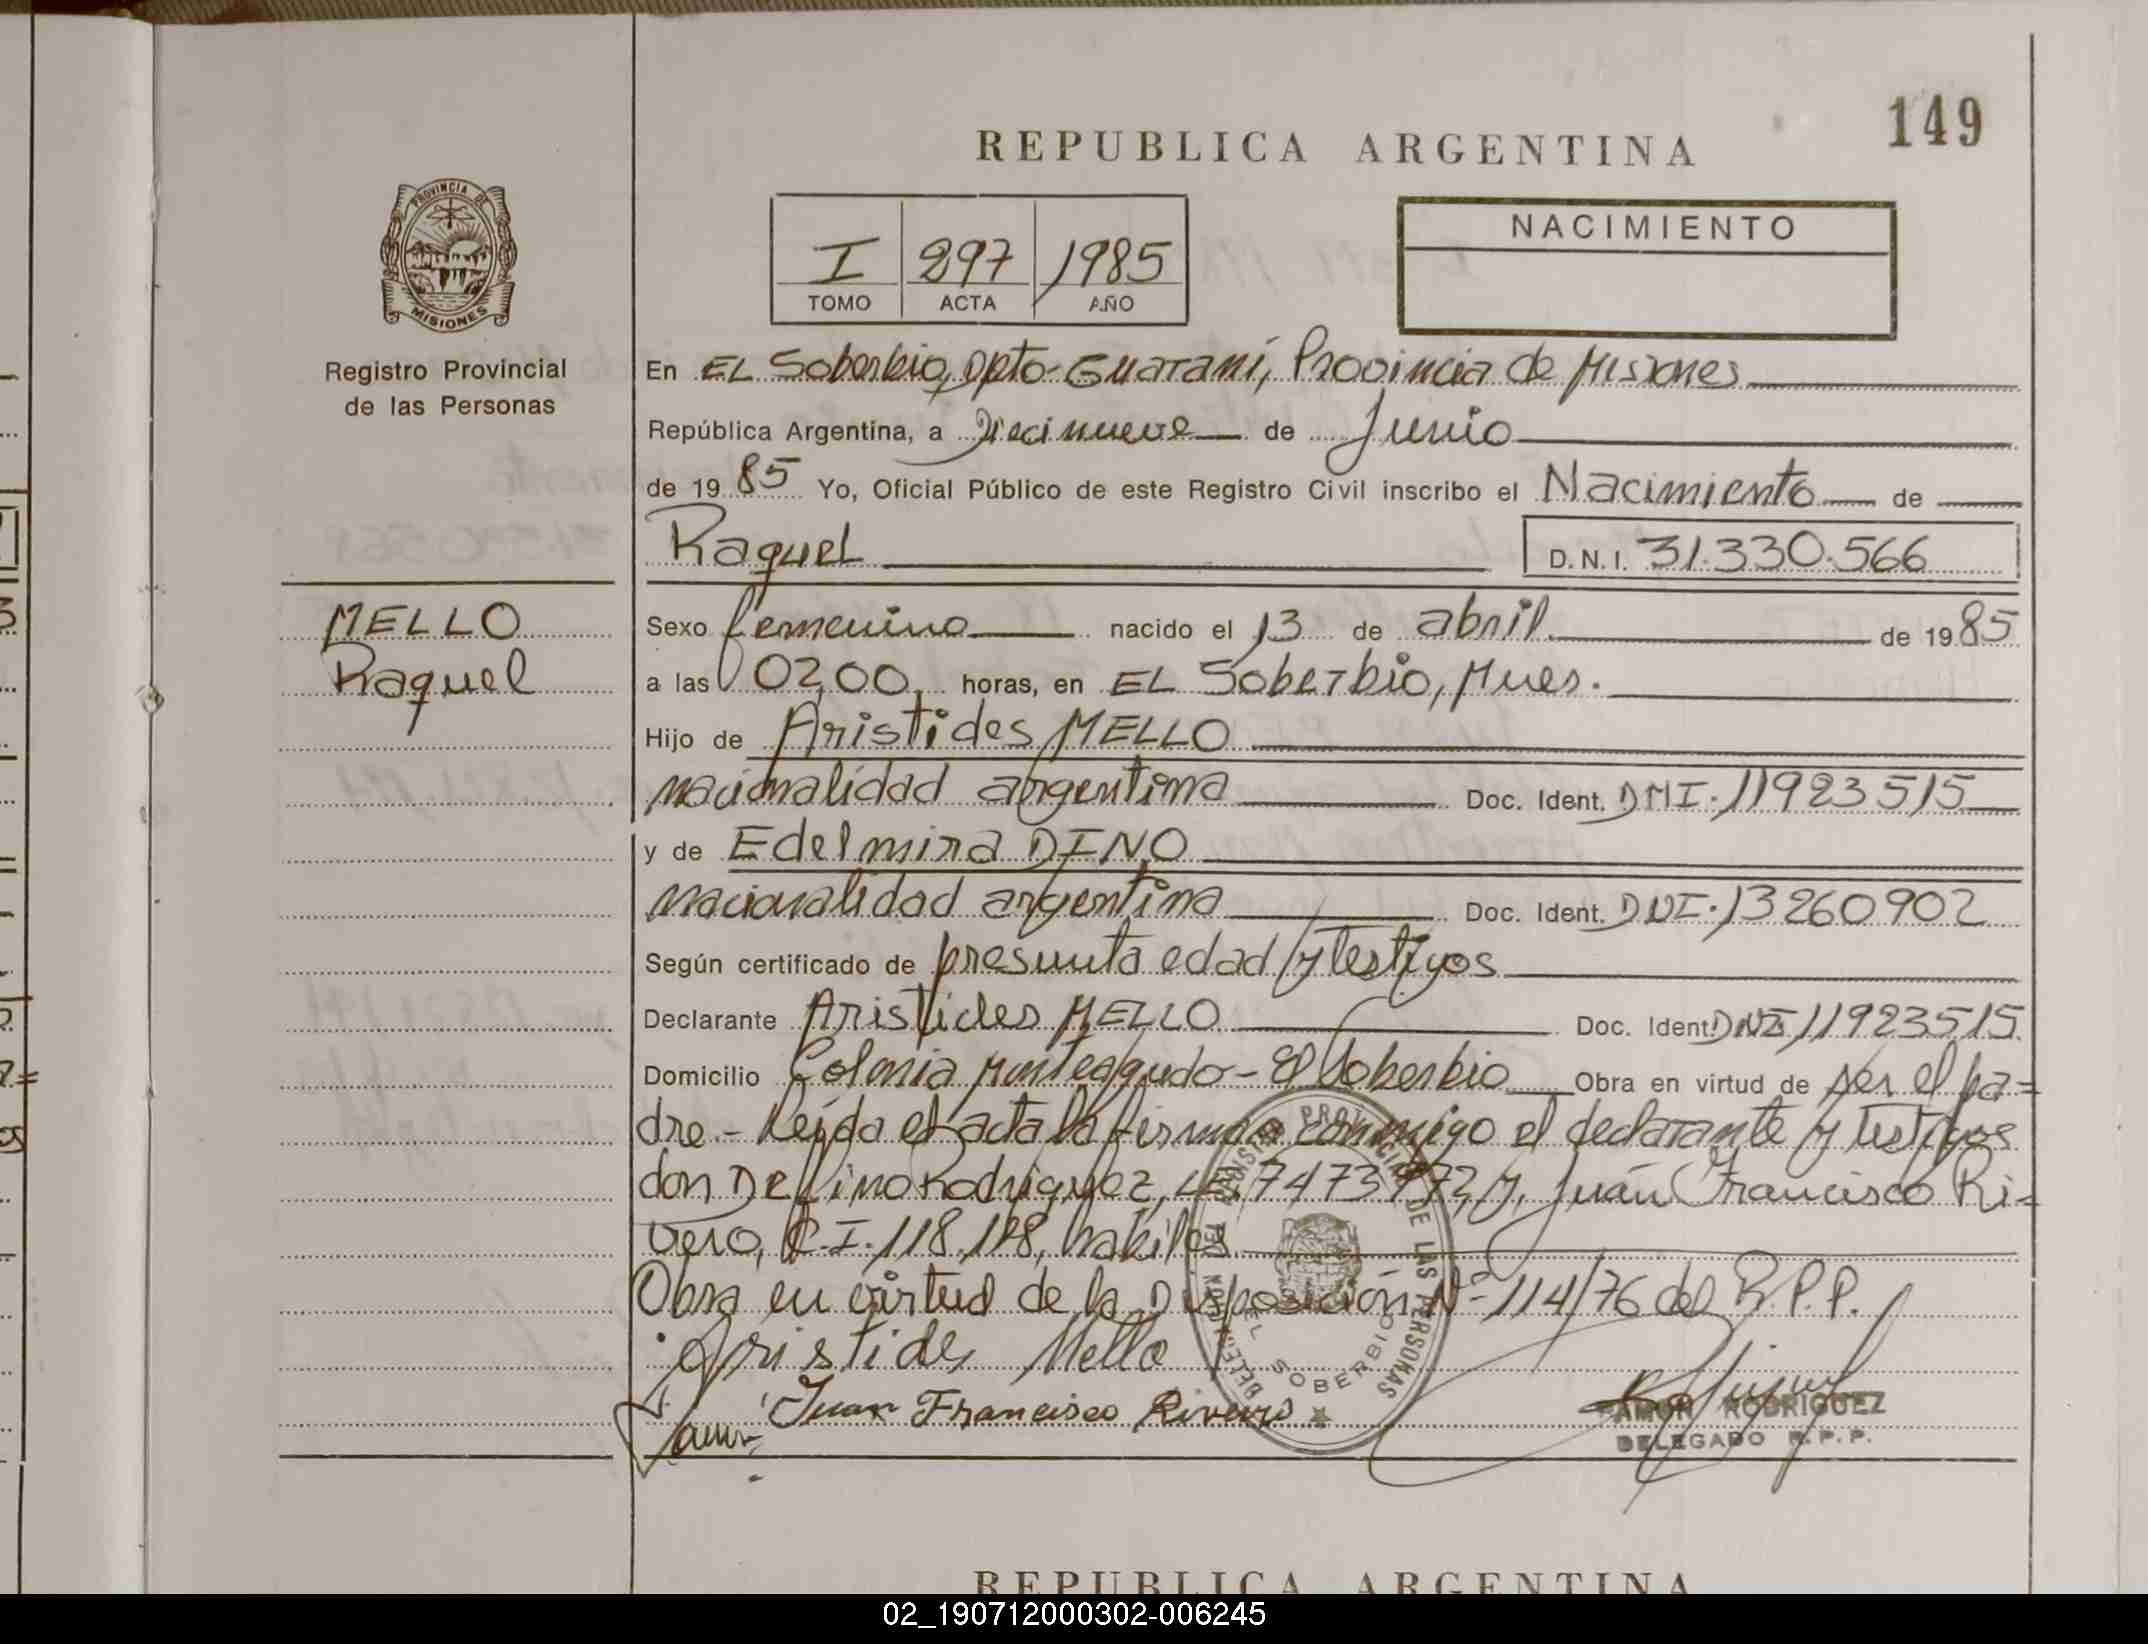 149
REPUBLICA ARGENTINA
PROVINCIA DE
MISIONES
I 297 1985
TOMO ACTA AÑO
NACIMIENTO
Registro Provincial
de las Personas
En EL Soberbio, Dpto-Guaraní, Provincia de Misiones
República Argentina, a Diecinueve de Junio
de 1985 Yo, Oficial Público de este Registro Civil inscribo el Nacimiento de
Raquel D.N.I. 31.330.566
MELLO
Raquel
Sexo femenino nacido el 13 de abril de 1985
a las 02,00 horas, en EL Soberbio, Mnes.
Hijo de Aristides MELLO
nacionalidad argentina Doc. Ident. DNI. 11923515
y de Edelmira DINO
nacionalidad argentina Doc. Ident. DNI. 13260902
Según certificado de presunta edad y testigos
Declarante Aristides MELLO Doc. Ident. DNI. 11923515
Domicilio Colonia Monteagudo - El Soberbio Obra en virtud de ser el pa=
dre.- Leída el acta la firman conmigo el declarante y testigos
don Delfino Rodriguez, LE. y, Juan Francisco Ri=
vero, C.I. habiles
Obra en virtud de la Disposición Nº 114/76 del R.P.P.
Aristides Mello
Juan Francisco Rivero
REGISTRO PROVINCIAL DE LAS PERSONAS
EL SOBERBIO
RAMON RODRIGUEZ
DELEGADO R.P.P.
REPUBLICA ARGENTINA
02_190712000302-006245